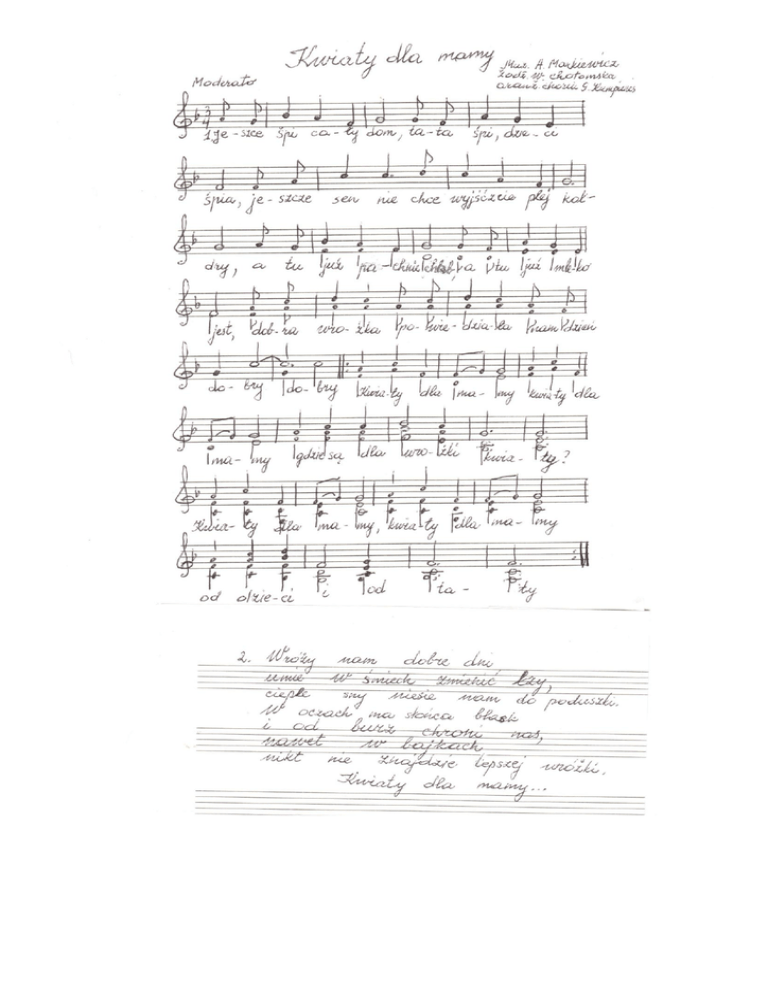 Kwiaty dla mamy
Muz. A. Markiewicz
Moderato
słowa W. Chotomska
aranż chór G.
1 Je-szce śpi ca-ły dom, ta-ta śpi, dzie-ci
śpia, je-szcze sen nie chce wyjść koł-
dry, a tu już pa-chnie chleb, a tu już mleko
jest, dob-ra wró-żka po-wie-dzia-ła nam dzień
do-bry do-bry Kwia-ty dla ma-my kwia-ty dla
ma-my gdzie są dla wró-żki kwia-ty?
Kwia-ty dla ma-my, kwia-ty dla ma-my
od dzie-ci i od ta-ty
2. Wróży nam dobre dni
umie w śmiech zmienić łzy,
ciepłe sny niesie nam do poduszki.
W oczach ma słońca blask
i od burz chroni nas,
nawet w bajkach
nikt nie znajdzie lepszej wróżki.
Kwiaty dla mamy...